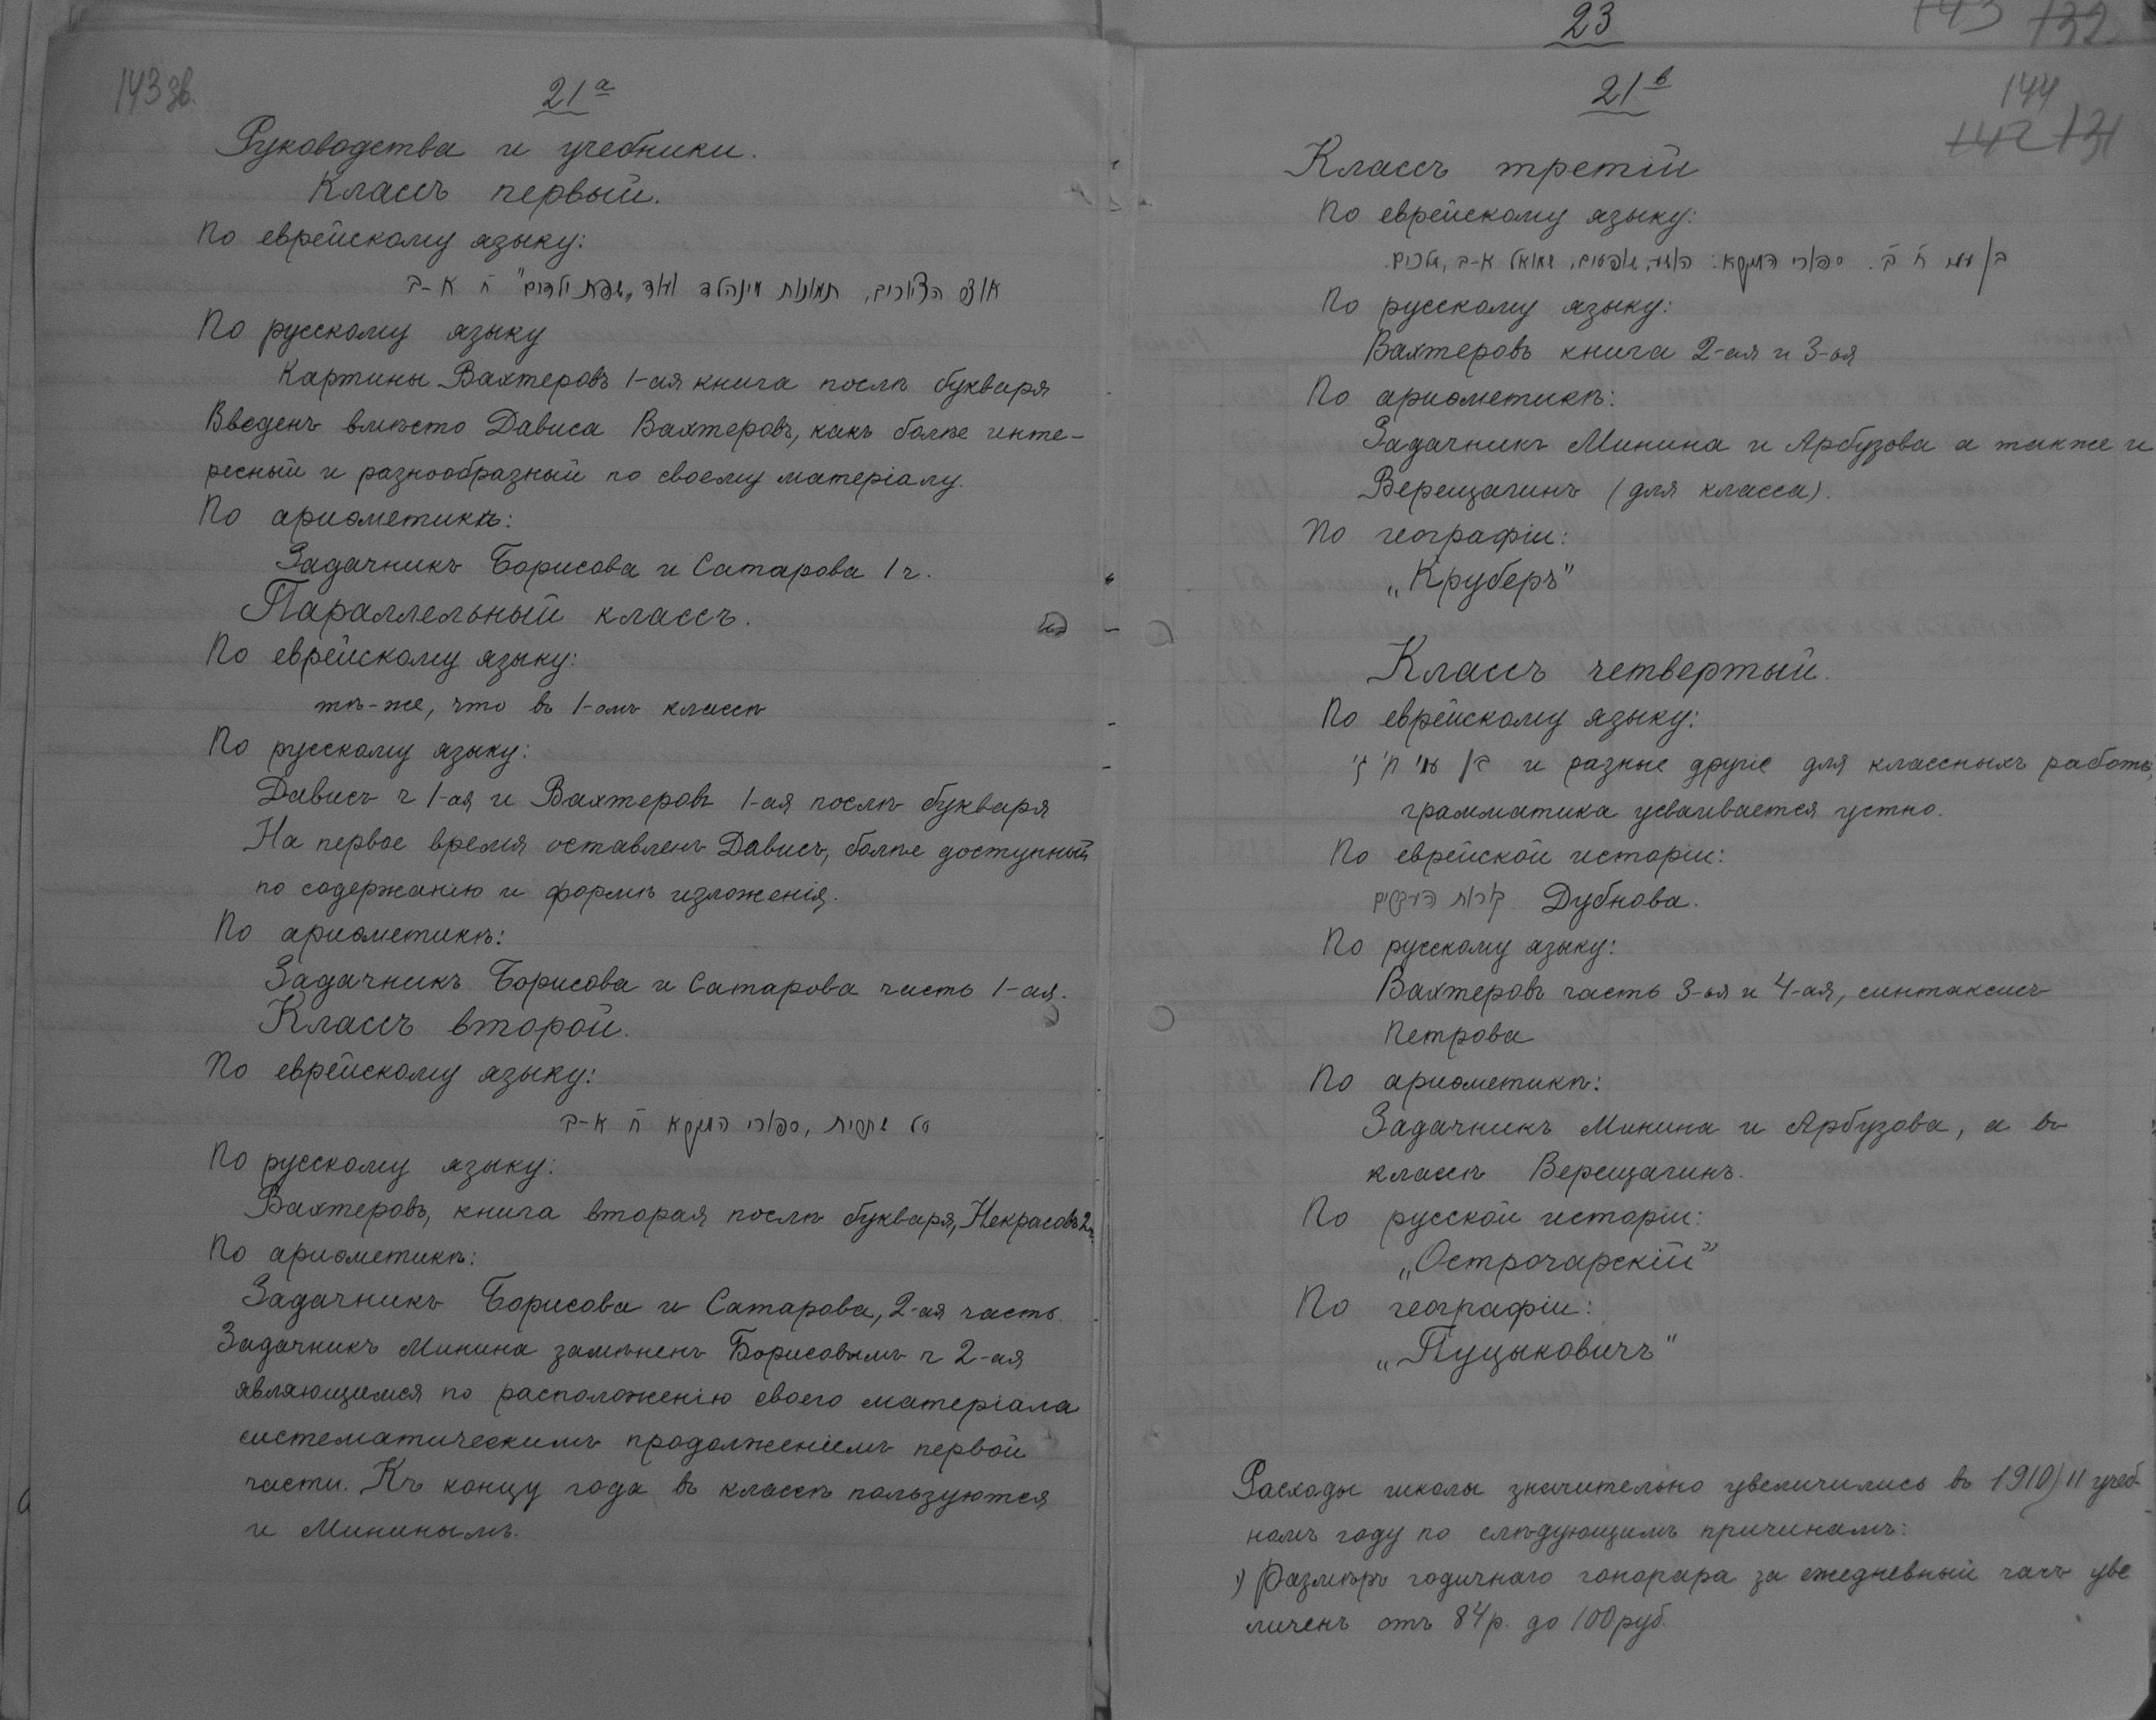 143 зв.
21 а
Руководства и учебники.
Классъ первый.
По еврейскому языку:
אוצר הציורים, תמונות מינהולד ועוד „שפת ילדים" ח א-ב
По русскому языку
Картины Вахтеровъ 1-ая книга послѣ букваря
Введенъ вмѣсто Дависа Вахтеровъ, какъ болѣе инте-
ресный и разнообразный по своему матеріалу.
По ариѳметикѣ:
Задачникъ Борисова и Сатарова 1 ч.
Параллельный классъ.
По еврейскому языку:
тѣ-же, что въ 1-омъ классѣ
По русскому языку:
Дависъ ч 1-ая и Вахтеровъ 1-ая послѣ букваря
На первое время оставленъ Дависъ, болѣе доступный
по содержанію и формѣ изложенія.
По ариѳметикѣ:
Задачникъ Борисова и Сатарова часть 1-ая.
Классъ второй.
По еврейскому языку:
ספורי המקרא ח א-ב
По русскому языку:
Вахтеровъ, книга вторая послѣ букваря, Некрасовъ 2 ч.
По ариѳметикѣ:
Задачникъ Борисова и Сатарова, 2-ая часть.
Задачникъ Минина замѣненъ Борисовымъ ч 2-ая
являющимся по расположенію своего матеріала
систематическимъ продолженіемъ первой
части. Къ концу года въ классѣ пользуются
и Мининымъ.
23
143 132
21 в
144
142 131
Классъ третій
По еврейскому языку:
בן עמי ח ב. ספורי המקרא: יהושע, שופטים, שמואל א-ב, מלכים.
По русскому языку:
Вахтеровъ книга 2-ая и 3-ья
По ариѳметикѣ:
Задачникъ Минина и Арбузова а также и
Верещагинъ (для класса).
По географіи:
„Круберъ"
Классъ четвертый.
По еврейскому языку:
בן עמי ח' ג' и разные другіе для классныхъ работъ,
грамматика усваивается устно.
По еврейской исторіи:
קורות העברים Дубнова.
По русскому языку:
Вахтеровъ часть 3-ья и 4-ая, синтаксисъ
Петрова
По ариѳметикѣ:
Задачникъ Минина и Арбузова, а въ
классѣ Верещагинъ.
По русской исторіи:
„Острочарскій"
По географіи:
„Пуцыковичъ"
Расходы школы значительно увеличились въ 1910/11 учеб-
номъ году по слѣдующимъ причинамъ:
1) Размѣръ годичнаго гонорара за ежедневный часъ уве
личенъ отъ 84 р. до 100 руб.